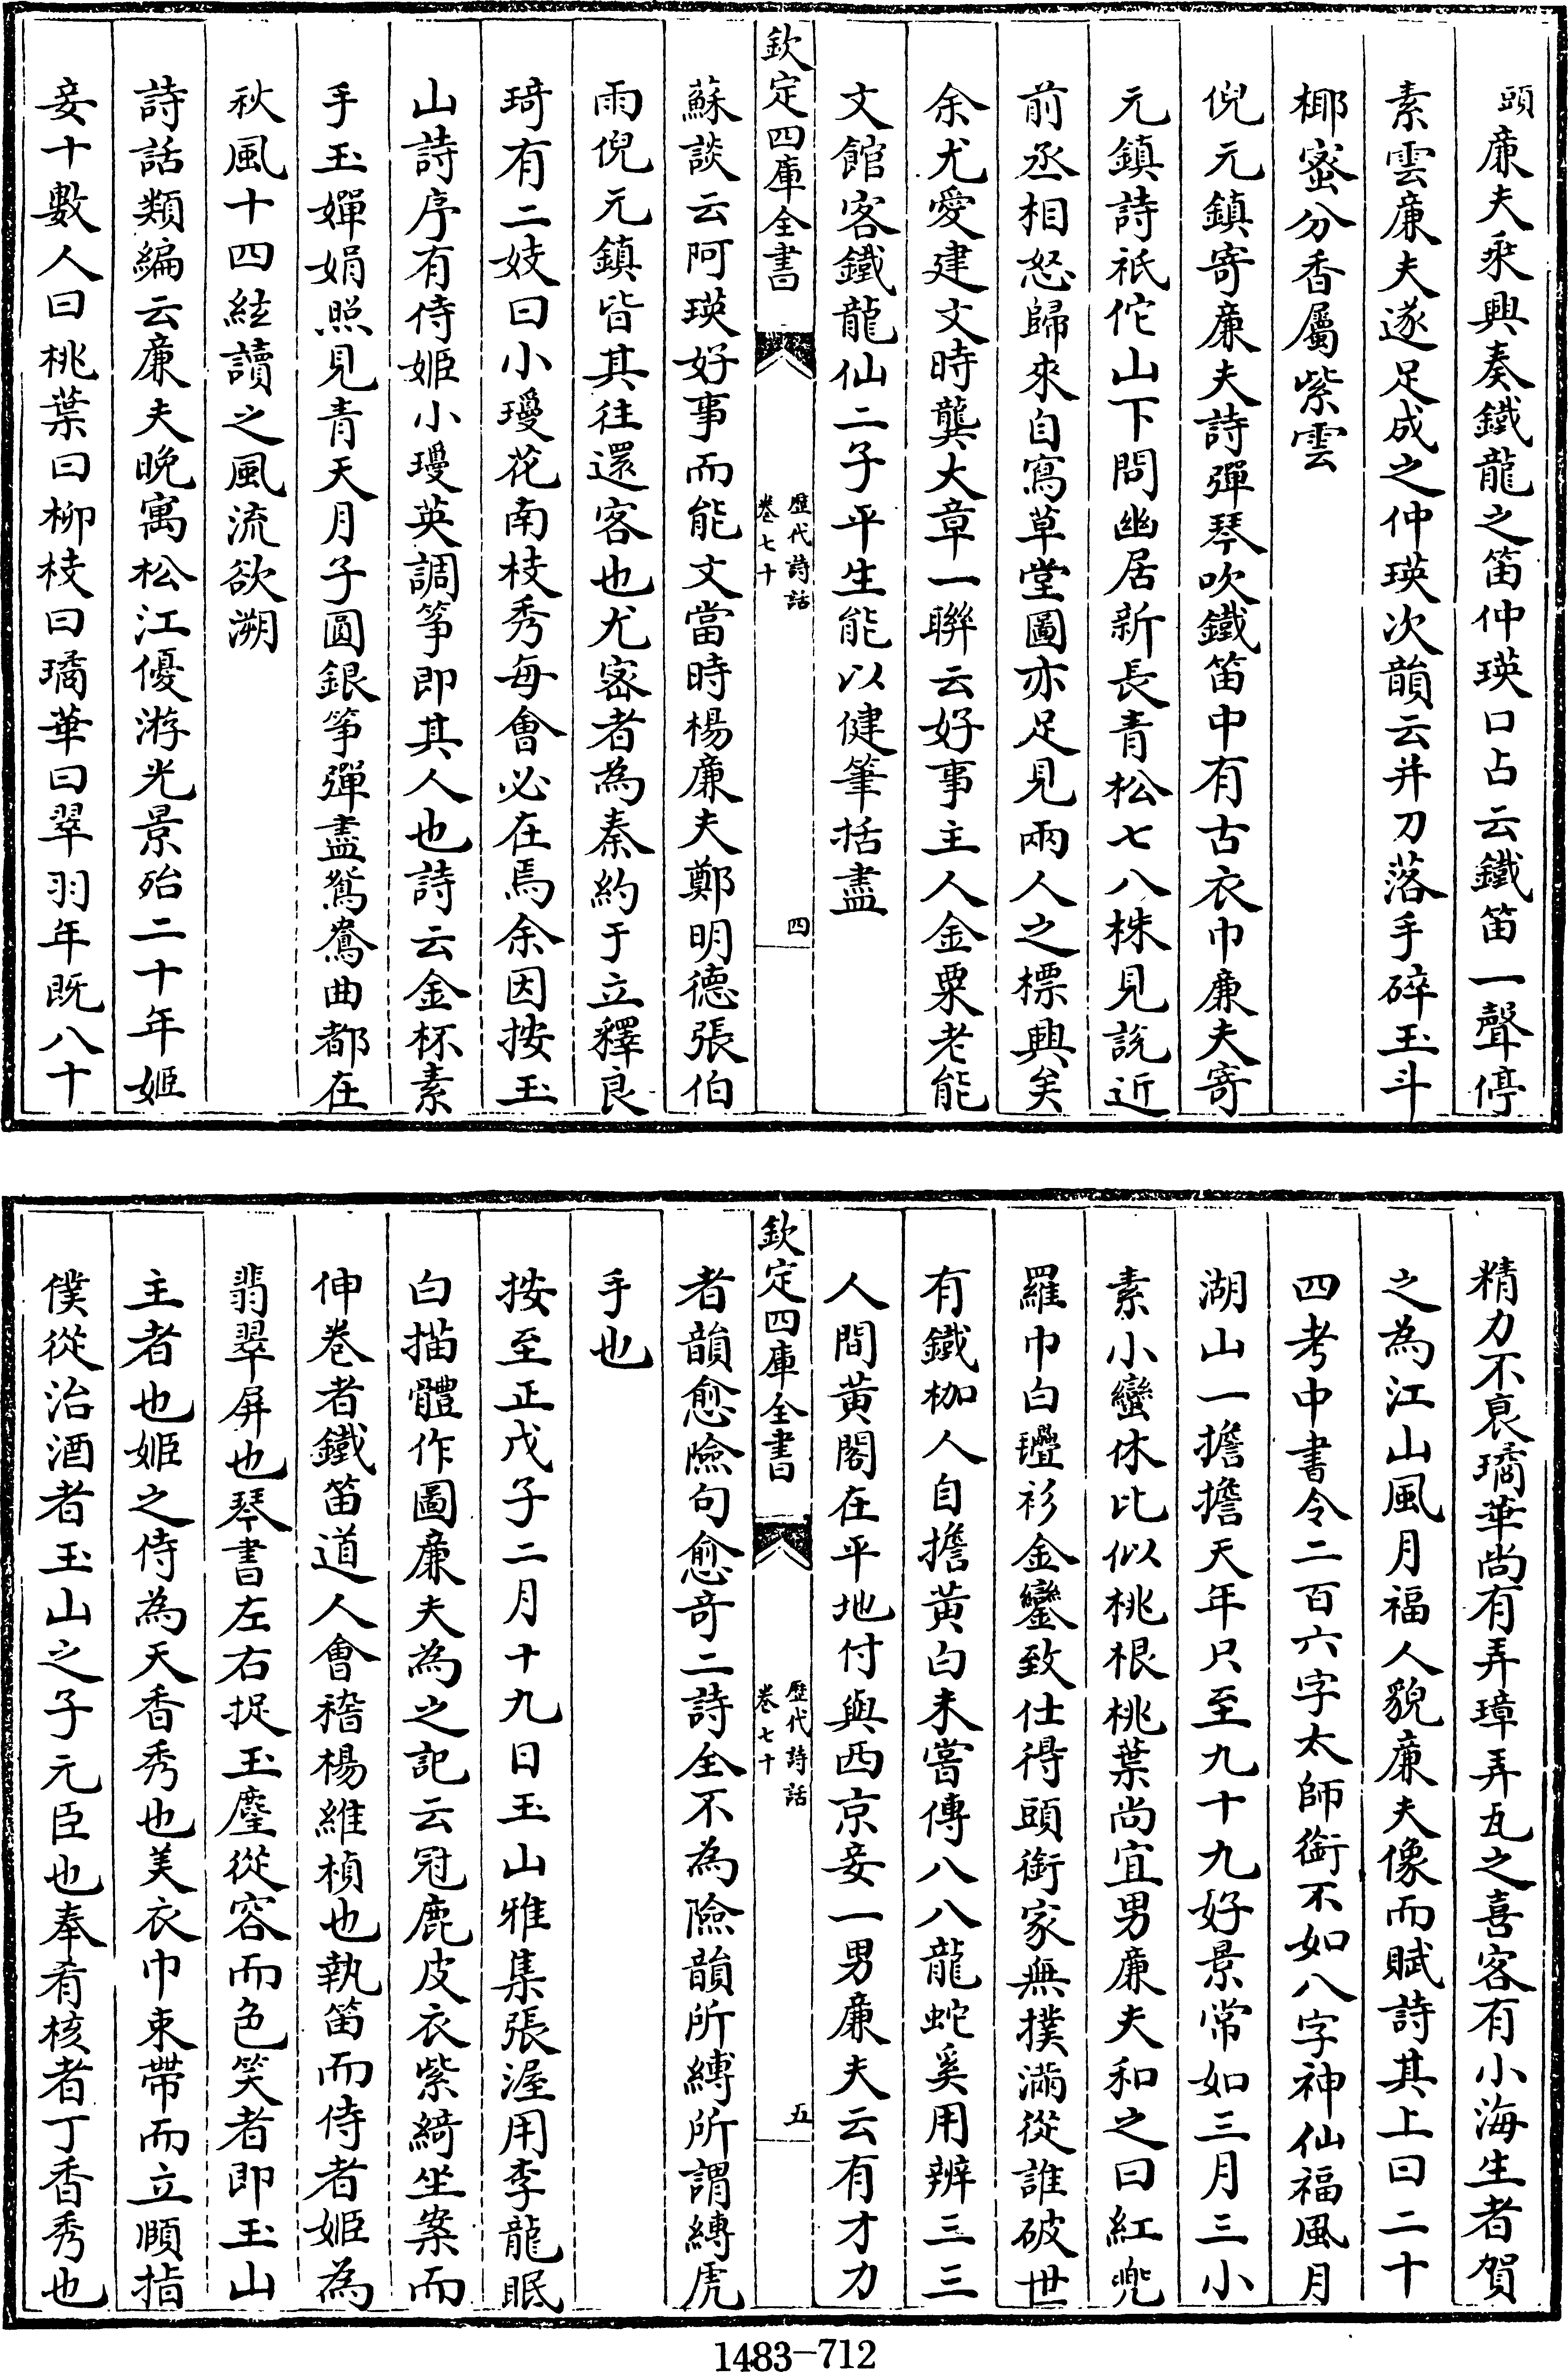 頭廉夫乘興奏鐵龍之笛仲瑛口占云鐵笛一聲停
素雲廉夫遂足成之仲瑛次韻云并刀落手碎玉斗
椰蜜分香屬紫雲
倪元鎮寄廉夫詩彈琴吹鐵笛中有古衣巾廉夫寄
元鎮詩祇佗山下問幽居新長青松七八株見說近
前丞相怒歸來自寫草堂圖亦足見兩人之標興矣
余尤愛建文時龔大章一聯云好事主人金粟老能
文館客鐵龍仙二子平生能以健筆括盡
欽定四庫全書
歷代詩話
卷七十
四
蘇談云阿瑛好事而能文當時楊廉夫鄭明德張伯
雨倪元鎮皆其往還客也尤密者為秦約于立釋良
琦有二妓曰小璚花南枝秀每會必在焉余因按玉
山詩序有侍姬小璚英調箏即其人也詩云金杯素
手玉嬋娟照見青天月子圓銀箏彈盡鴛鴦曲都在
秋風十四絃讀之風流欲溯
詩話類編云廉夫晚寓松江優游光景殆二十年姬
妾十數人曰桃葉曰柳枝曰璚華曰翠羽年既八十
精力不衰璚華尚有弄璋弄瓦之喜客有小海生者賀
之為江山風月福人貌廉夫像而賦詩其上曰二十
四考中書令二百六字太師銜不如八字神仙福風月
湖山一擔擔天年只至九十九好景常如三月三小
素小蠻休比似桃根桃葉尚宜男廉夫和之曰紅兜
羅巾白㲲衫金鑾致仕得頭銜家無撲滿從誰破世
有鐵枷人自擔黃白未嘗傳八八龍蛇奚用辨三三
人間黃閣在平地付與西京妾一男廉夫云有才力
欽定四庫全書
歷代詩話
卷七十
五
者韻愈險句愈奇二詩全不為險韻所縛所謂縛虎
手也
按至正戊子二月十九日玉山雅集張渥用李龍眠
白描體作圖廉夫為之記云冠鹿皮衣紫綺坐案而
伸卷者鐵笛道人會稽楊維楨也執笛而侍者姬為
翡翠屏也琴書左右捉玉麈從容而色笑者即玉山
主者也姬之侍為天香秀也美衣巾束帶而立頤指
僕從治酒者玉山之子元臣也奉肴核者丁香秀也
1483-712